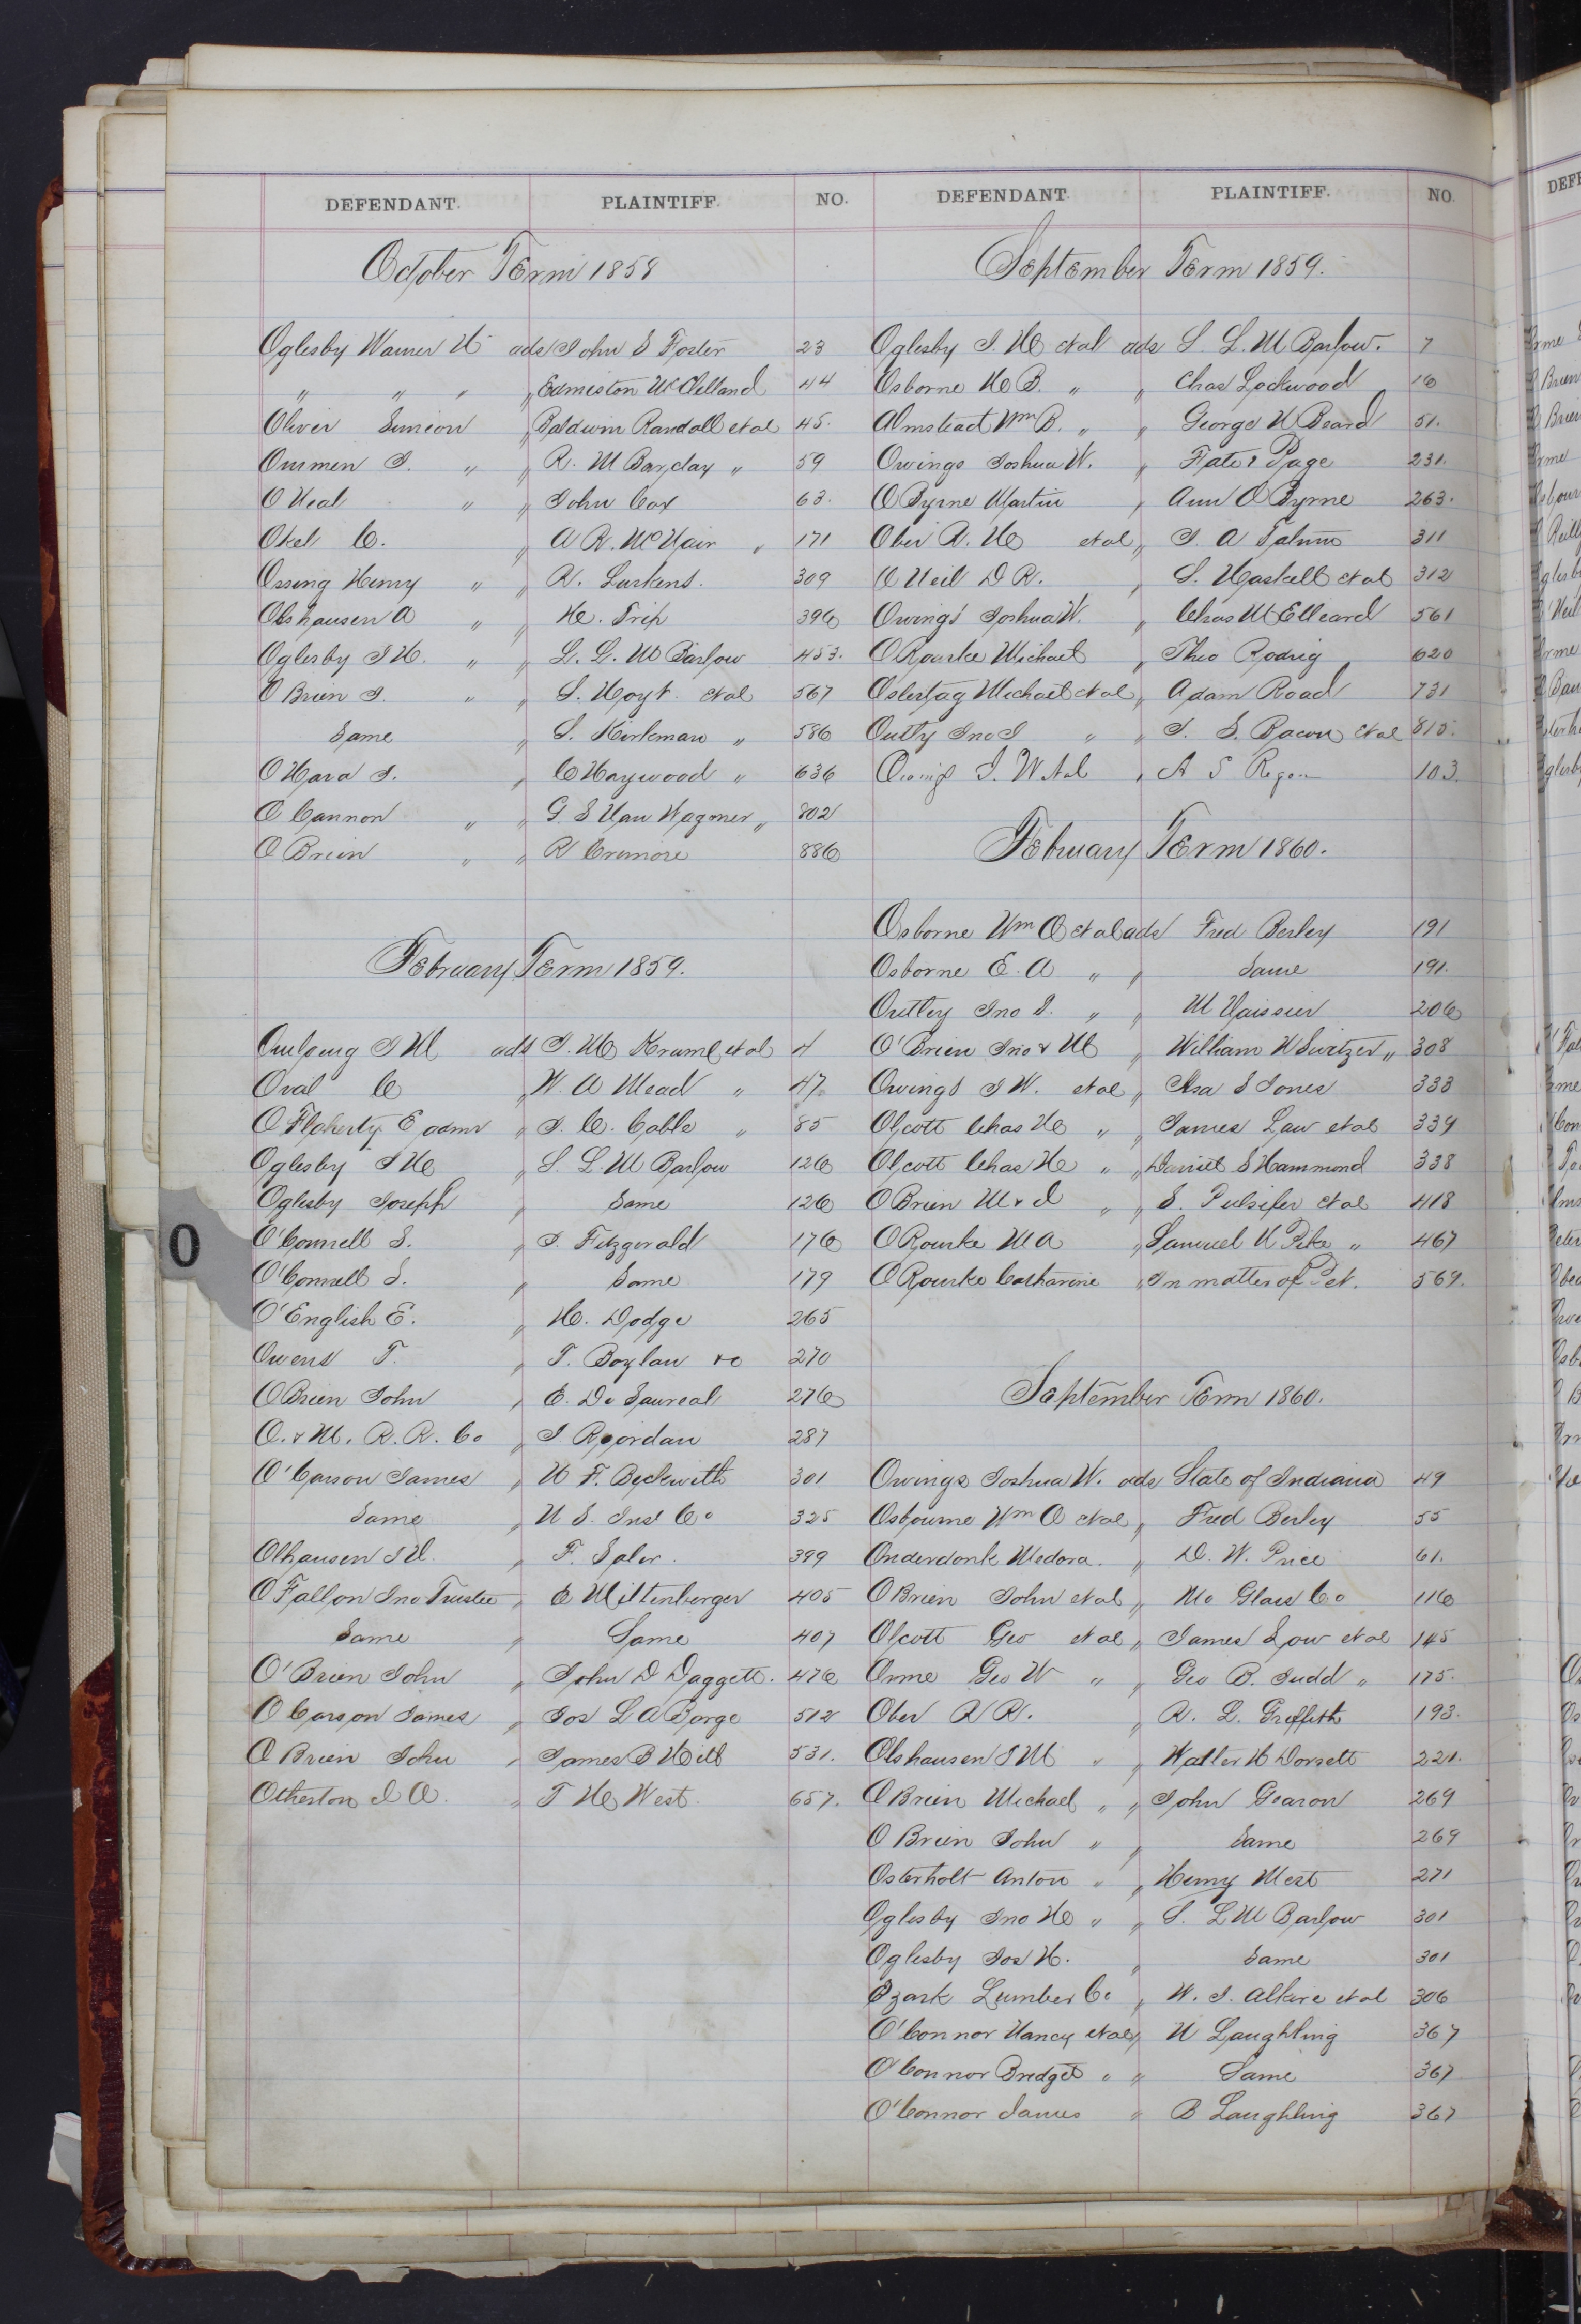 DEFENDANT. PLAINTIFF. NO.
October Term 1858
Oglesby Warner H ads John S Foster 23
" " " " Edmiston McClelland 44
Oliver Simeon " Baldwin Randall et al 45.
Ommen J. " " R. M Barclay " 59
O Neal " " John Cox 63.
Okel C. " A R. McNair " 171
Ossing Henry " " R. Luskens. 309
Olshausen A " " H. Trip 396
Oglesby J H. " " S. L. M Barlow 453.
O Brien J. " " S. Hoyt et al 567
Same " S. Kirkman " 586
O Hara J. " C Haywood " 636
O Cannon " " G S Van Wagoner " 802
O Brien " " R Cremore 886
February Term 1859.
J M ads J. M Krum et al 4
Oval C " W. A Mead " 47.
O Flaherty E admr " J. C. Cable " 85
Oglesby J H " S. L. M Barlow 126
Oglesby Joseph " Same 126
O'Connell S. " J. Fitzgerald 176
O'Connell S. " Same 179
O'English E. " H. Dodge 265
Owens T. " T. Boylan &c 270
O Brien John " E. De Saureal 276
O. & M. R. R. Co " J. Riordan 287
O'Carson James " N F. Beckwith 301
Same " U S. Ins Co 325
Olhausen J W. " F. Saler. 399
O Fallon Jno Trustee " E Miltenberger 405
Same " Same 407
O'Brien John " John D Daggett. 476
O Carson James " Jos L A Barge 512
O Brien John " James B Hill 531.
Otherton J O. " T H West. 657.
DEFENDANT. PLAINTIFF. NO.
September Term 1859.
Oglesby J. H et al ads S. L. M Barlow. 7
Osborne H B. " " Chas Lockwood 16
Olmstead Wm B. " " George N Beard 51.
Owings Joshua W. " Tate & Page 231.
O Byrne Martin " Ann O Byrne 263.
Ober R. H et al " J. A 311
O Neil D R. " S. Haskell et al 312
Owings Joshua W. " Chas M Elleard 561
O Rourke Michael " Theo Rodrig 620
Ostertag Michael et al " Adam Road 731
Outly Jno J " " J. S. Bacon et al 815.
Owings J. W et al " A S 103.
February Term 1860.
Osborne Wm O et al ads Fred Berley 191
Osborne E. A " " Same 191.
Outley Jno J. " " M Vaissier 206
O'Brien Jno & M " William N Switzer " 308
Owings J W. et al " Asa S Jones 333
Olcott Chas H " " James Law et al 339
Olcott Chas H " " Daniel S Hammond 338
O Brien M & J " " S. Pulsifer et al 418
O Rourke M A " Samuel N Pike " 467
O Rourke Catharine " In matter of Pet. 569.
September Term 1860.
Owings Joshua W. ads State of Indiana 49
Osbourne Wm O et al " Fred Berley 55
Onderdonk Medora. " D. W. Price 61.
O Brien John et al " Mo Glass Co 116
Olcott Geo et al " James Low et al 145
Orme Geo W " " Geo B. Judd " 175.
Ober R R. " R. L. Griffith 193.
Olshausen J M " " Walter H Dorsett 221.
O Brien Michael " " John Gearon 269
O Brien John " " Same 269
Osterholt Anton " " Henry West 271
Oglesby Jno H " " S. L M Barlow 301
Oglesby Jos H. " Same 301
Ozark Lumber Co " W. J. Alkire et al 306
O'Connor Nancy et al " N Laughling 367
O'Connor Bridget " " Same 367
O'Connor James " B Laughling 367
O